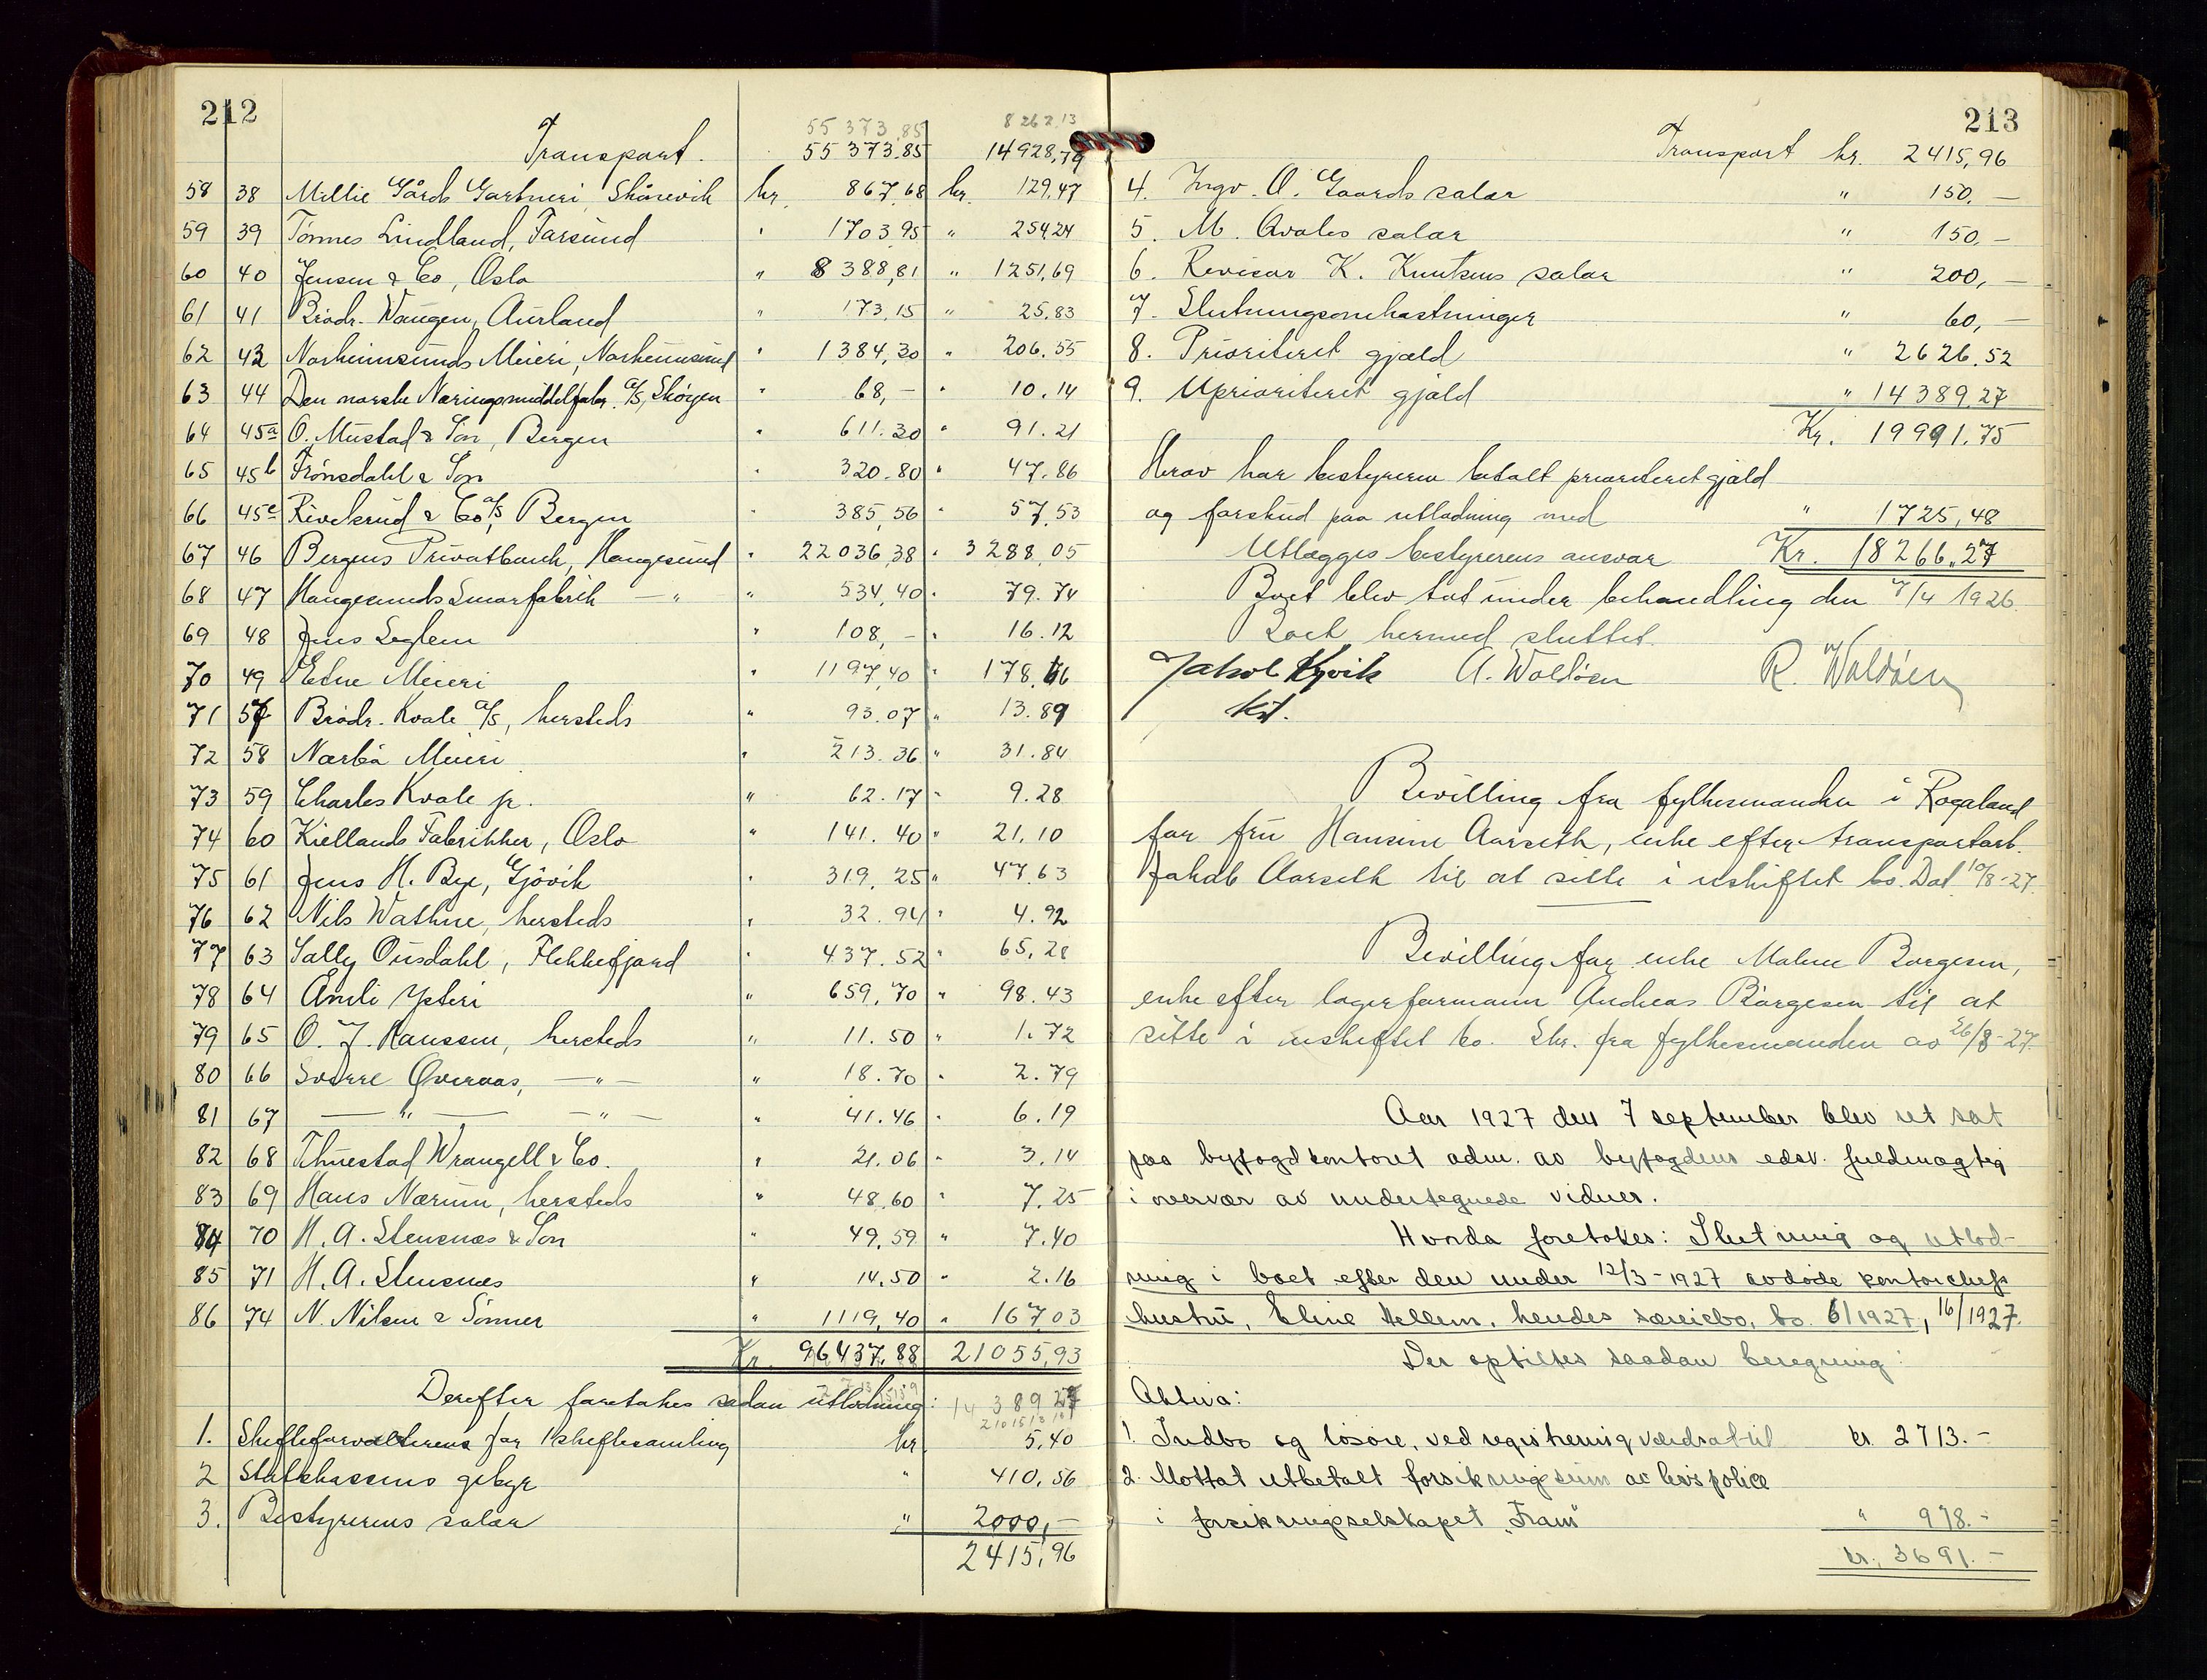 212
55 373.85 8262.13
Transport. 55 373.85 14928,79
58 38 Millie Gårds Gartneri, Skånevik kr. 867,68 kr. 129,47
59 39 Tønnes Lindland, Farsund " 1703,95 " 254,24
60 40 Jensen & Co, Oslo " 8388,81 " 1251,69
61 41 Brødr. Wangen, Aurland " 173,15 " 25,83
62 42 Norheimsunds Meieri, Norheimsund " 1384,30 " 206.55
63 44 Den norske Næringsmiddelfabr. A/S, Skøyen " 68,- " 10.14
64 45a O. Mustad & Søn, Bergen " 611.30 " 91.21
65 45b Trønsdahl & Søn " 320.80 " 47.86
66 45c Rivekrud & Co A/S, Bergen " 385,56 " 57,53
67 46 Bergens Privatbank, Haugesund " 22036,38 " 3288,05
68 47 Haugesunds Smørfabrik — " " 534,40 " 79.74
69 48 Jens Seglem " 108,- " 16.12
70 49 Etne Meieri " 1197,40 " 178.66
71 57 Brødr. Kvale A/S, hersteds " 93.07 " 13.89
72 58 Nærbø Meieri " 213.36 " 31.84
73 59 Charles Kvale jr. " 62.17 " 9.28
74 60 Kiellands Fabrikker, Oslo " 141.40 " 21,10
75 61 Jens H. Bye, Gjøvik " 319,25 " 47,63
76 62 Nils Wathne, hersteds " 32.94 " 4.92
77 63 Sally Ousdahl, Flekkefjord " 437.52 " 65,28
78 64 Åmli Ysteri " 659,70 " 98.43
79 65 O. J. Hanssen, hersteds " 11.50 " 1.72
80 66 Sverre Øveraas, — " — " 18.70 " 2.79
81 67 — " — — " — " 41.46 " 6.19
82 68 Thuestad Wrangell & Co. " 21.06 " 3.14
83 69 Hans Nærum, hersteds " 48.60 " 7.25
84 70 H. A. Stensnæs & Søn " 49.59 " 7.40
85 71 H. A. Stensnæs " 14.50 " 2.16
86 74 N. Nilsen & Sønner " 1119,40 " 167 03
Kr. 96437.88 21055,93
Derefter foretakes sådan utlodning: 14 389 27
1. Skifteforvalterens for 1 skiftesamling kr. 5,40
2 Statskassens gebyr " 410,56
3. Bestyrerens salær " 2000,-
2415,96
213
Transport kr. 2415,96
4. Ingv. O. Gaards salær " 150,-
5. M. Avalos salær " 150,-
6. Revisor K. Knutsens salær " 200,-
7. Slutningsomkostninger " 60,-
8. Prioriteret gjæld " 2626.52
9. Uprioriteret gjæld " 14389,27
Kr. 19991.75
Herav har bestyreren betalt prioriteret gjæld
og forskud paa utlodning med " 1725,48
Utlægges bestyrerens ansvar Kr. 18266.27
Boet blev tat under behandling den 7/4 1926.
Boet hermed sluttet.
Jakob Kyvik A. Waldøen R. Waldøen
kst.
Bevilling fra fylkesmanden i Rogaland
for fru Hansine Aarseth, enke efter transportarb.
Jakob Aarseth til at sitte i uskiftet bo. Dat. 10/8-27.
Bevilling for enke Malene Børgesen,
enke efter lagerformann Andreas Børgesen til at
sitte i uskiftet bo. Skr. fra fylkesmanden av 26/8-27.
Aar 1927 den 7 september blev ret sat
paa byfogdkontoret adm. av byfogdens edsv. fuldmægtig
i overvær av undertegnede vidner.
Hvorda foretokes: Slutning og utlod-
ning i boet efter den under 12/3-1927 avdøde kontorchefs
hustru, Eline Hellem, hendes særeiebo, bo. 6/1927, 16/1927.
Der opstilles saadan beregning:
Aktiva:
1. Indbo og løsøre, ved registrering værdsat til kr. 2713.-
2. Mottat utbetalt forsikringssum av livspolice
i forsikringsselskapet „Fram" " 978.-
kr. 3691.-